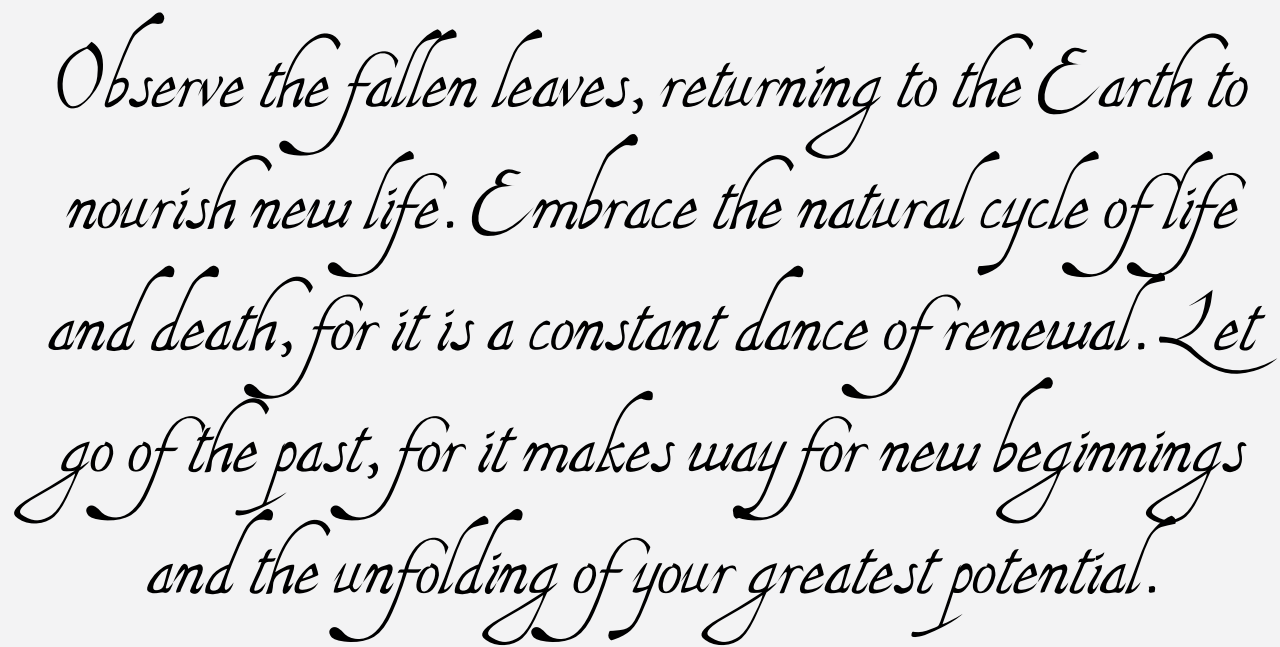 Observe the fallen leaves, returning to the Earth to
nourish new life. Embrace the natural cycle of life
and death, for it is a constant dance of renewal. Let
go of the past, for it makes way for new beginnings
and the unfolding of your greatest potential.